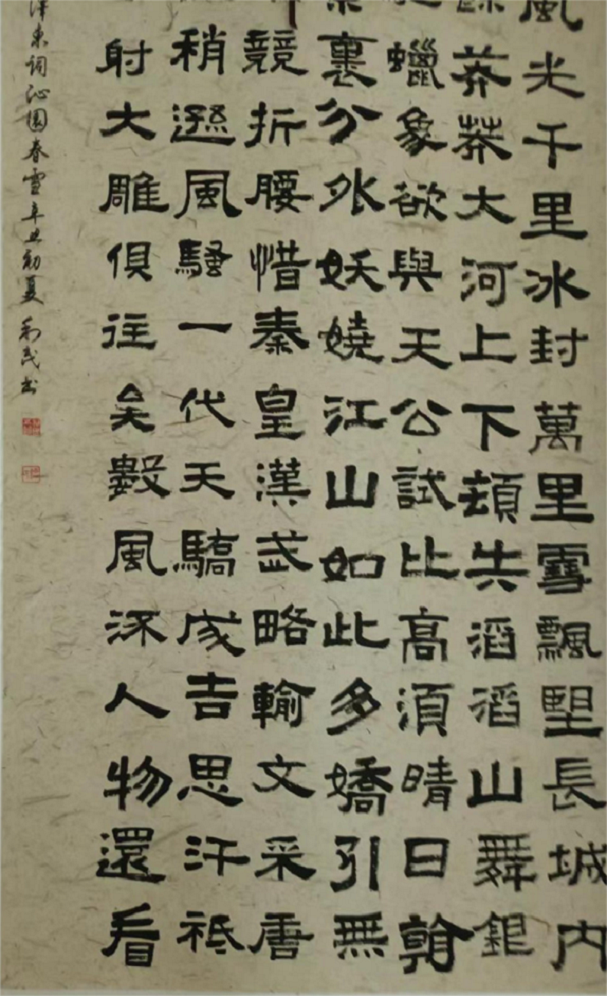 風光千里冰封萬里雪飄朢長城内
餘莽莽大河上下頓失滔滔山舞銀
蠟象欲與天公試比高須晴日看
素裹分外妖嬈江山如此多嬌引無
競折腰惜秦皇漢武略輸文采唐
稍遜風騷一代天驕成吉思汗祗
射大雕俱往矣數風流人物還看
澤東詞沁園春雪辛丑初夏 利民书